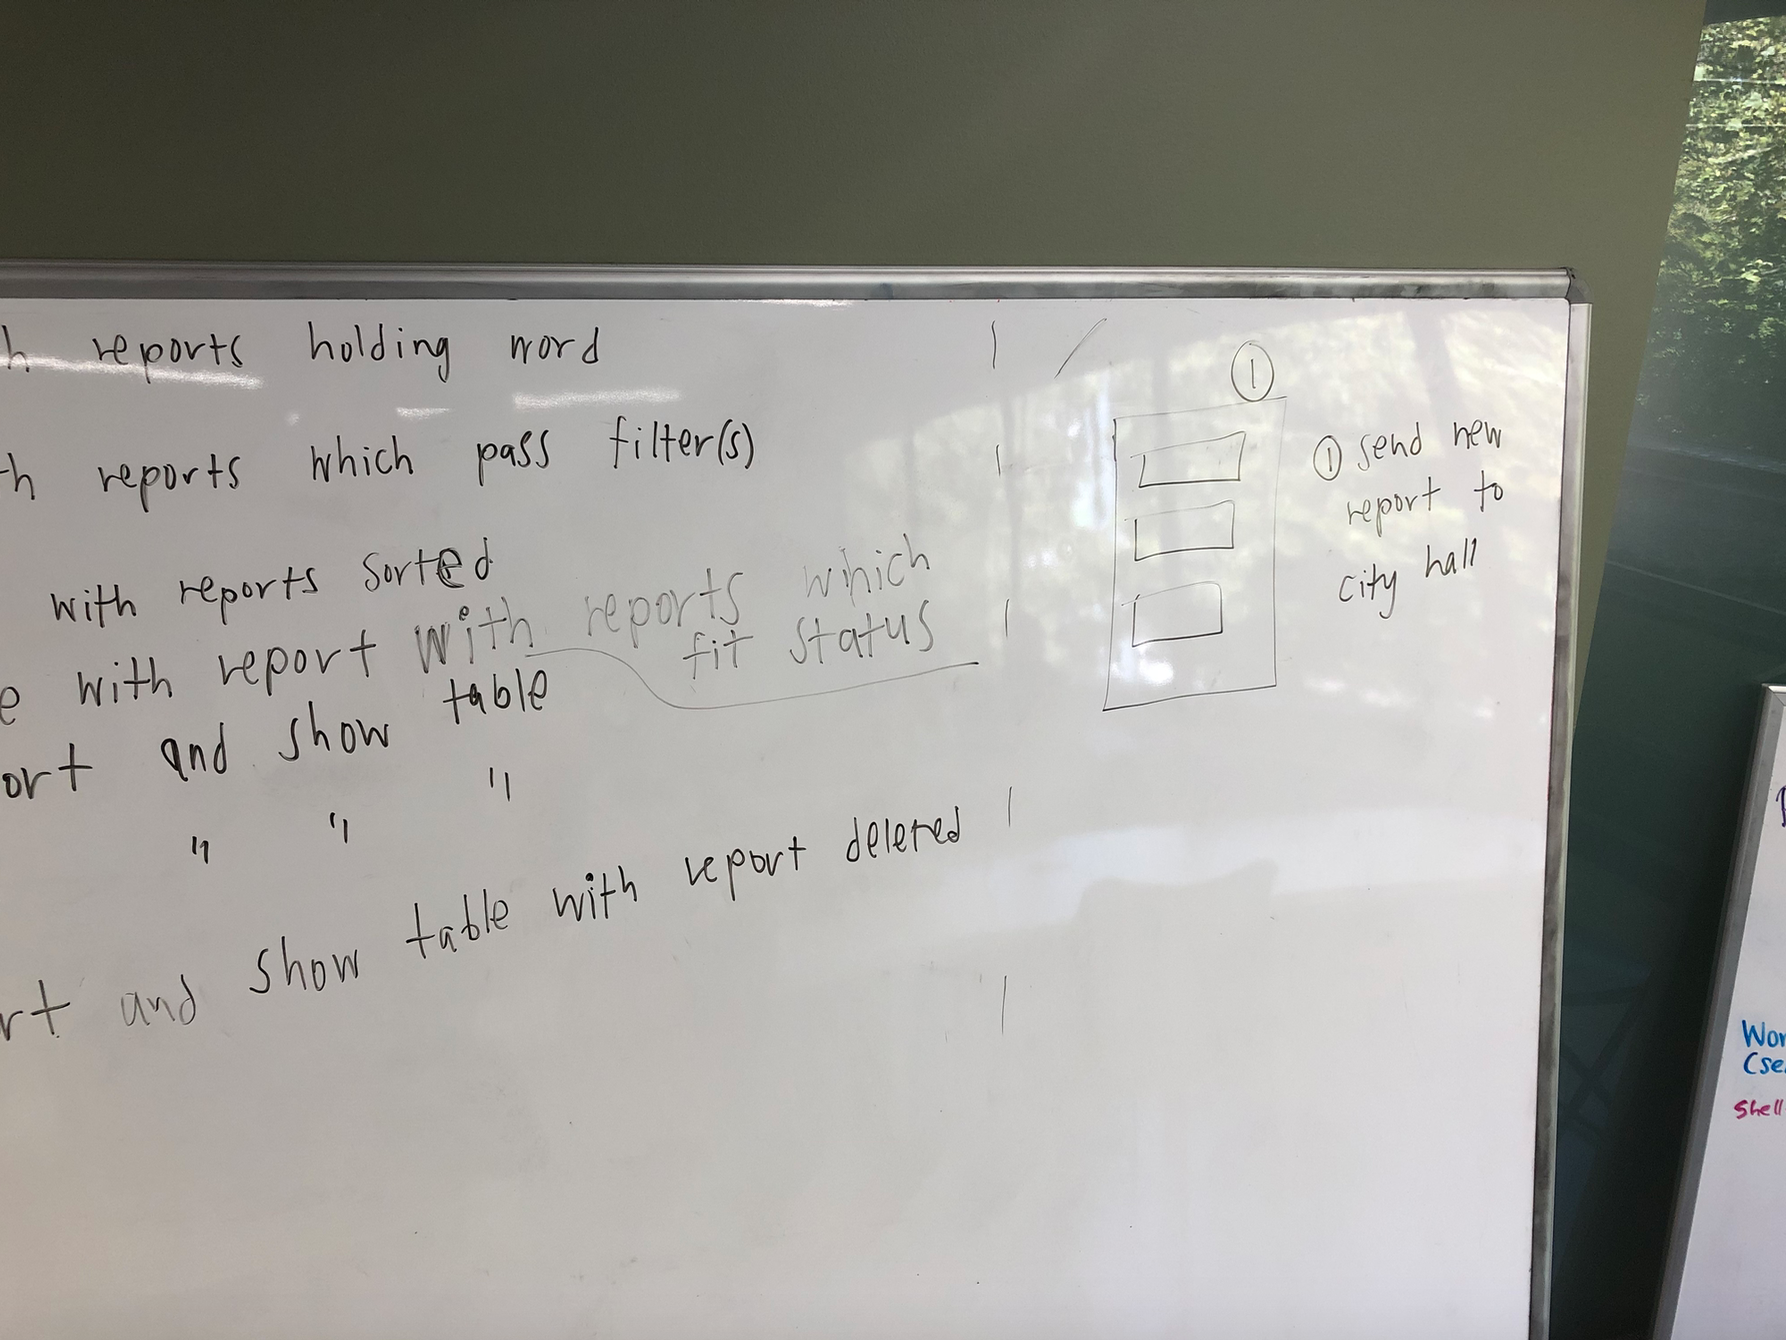 h reports holding word
th reports which pass filter(s)
with reports sorted
e with report with reports which
fit status
ort and show table
" " "
rt and show table with report deleted
①
① send new
report to
city hall
Wor
(se
Shell